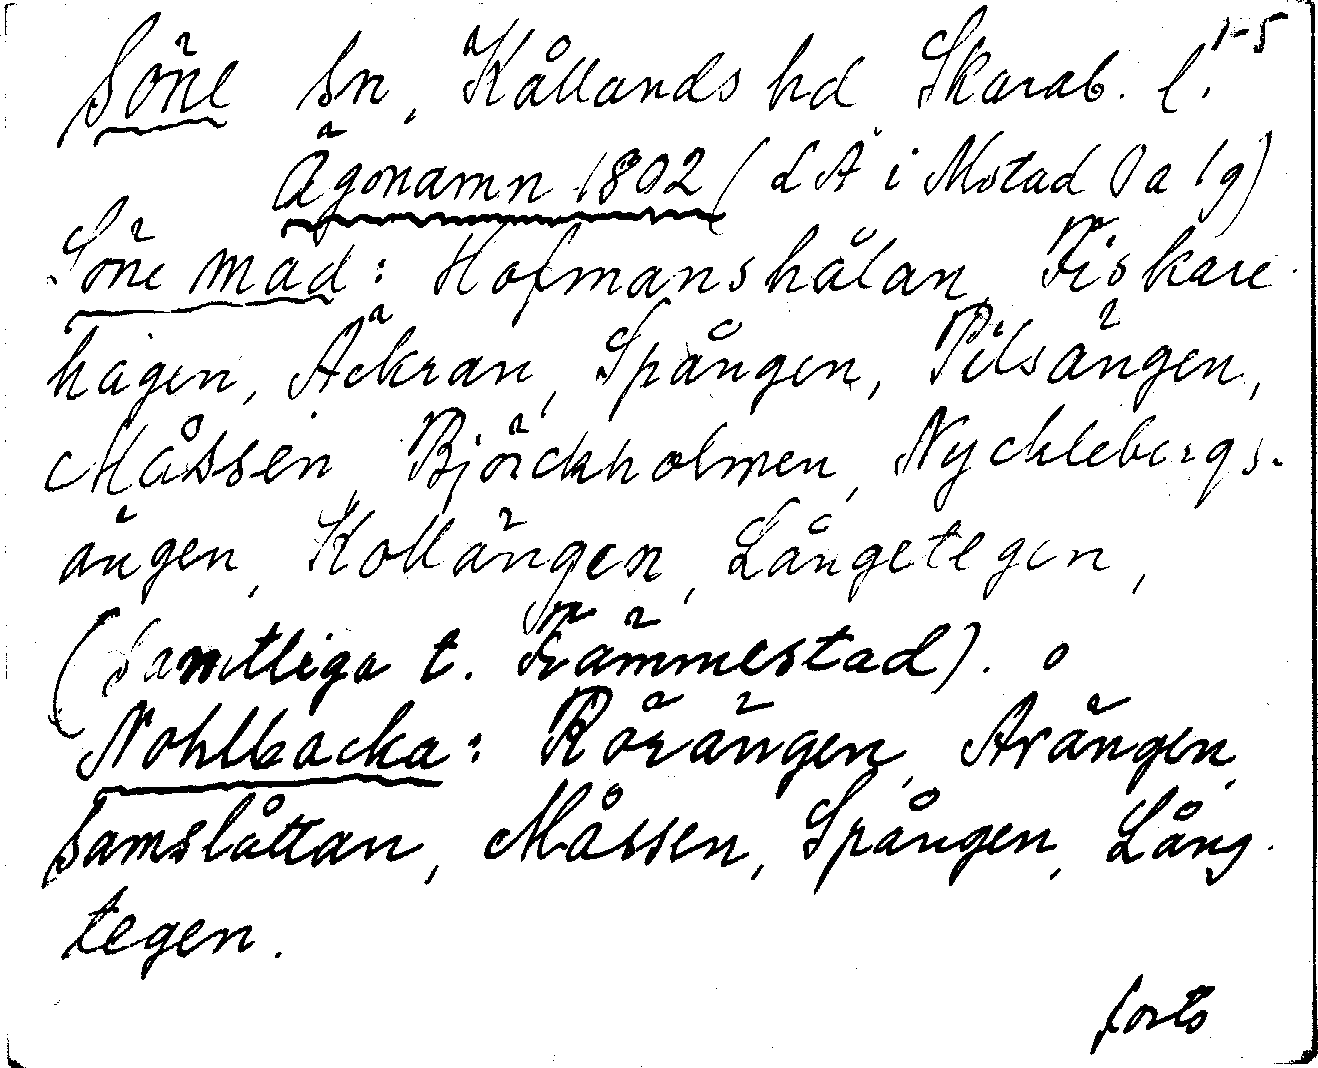 1-5
Söne Sn, Kållands hd Skarab. l.
Ägonamn 1802 (LA i Mstad Oa 19)
Söne mad: Hofmanshålan, Fiskare-
hagen, Äckran, Spången, Pilsängen,
Måssen, Björckholmen, Nycklebergs-
ängen, Kollängen, Långetegen,
(Samtliga t. Främmestad).
Nohlbacka: Rörängen, Arängen,
Samslåttan, Måssen, Spången, Lång-
tegen.
forts